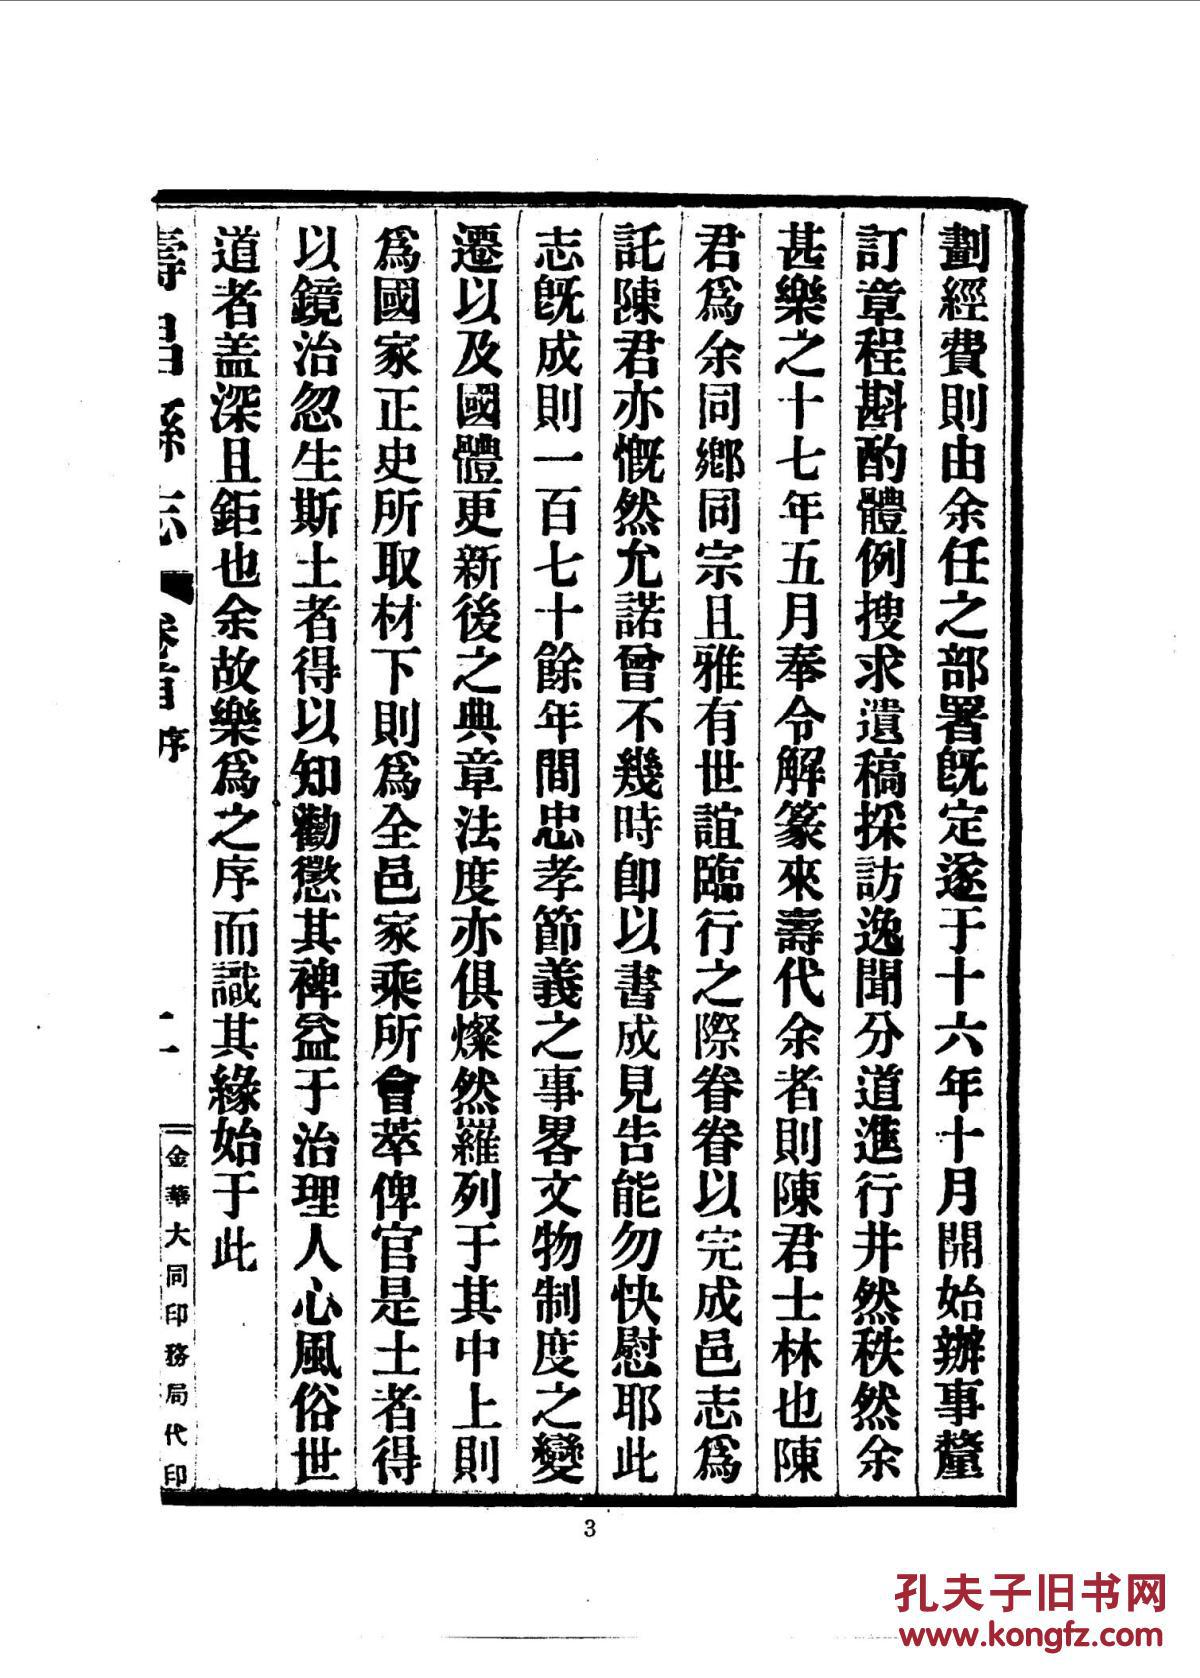 劃經費則由余任之部署旣定遂于十六年十月開始辦事釐
訂章程斟酌體例搜求遺稿採訪逸聞分道進行井然秩然余
甚樂之十七年五月奉令解篆來壽代余者則陳君士林也陳
君爲余同鄉同宗且雅有世誼臨行之際眷眷以完成邑志爲
託陳君亦慨然允諾曾不幾時卽以書成見告能勿快慰耶此
志旣成則一百七十餘年間忠孝節義之事畧文物制度之變
遷以及國體更新後之典章法度亦俱燦然羅列于其中上則
爲國家正史所取材下則爲全邑家乘所會萃俾官是土者得
以鏡治忽生斯土者得以知勸懲其裨益于治理人心風俗世
道者盖深且鉅也余故樂爲之序而識其緣始于此
壽昌縣志 卷首 序 二 金華大同印務局代印
3
孔夫子旧书网
www.kongfz.com